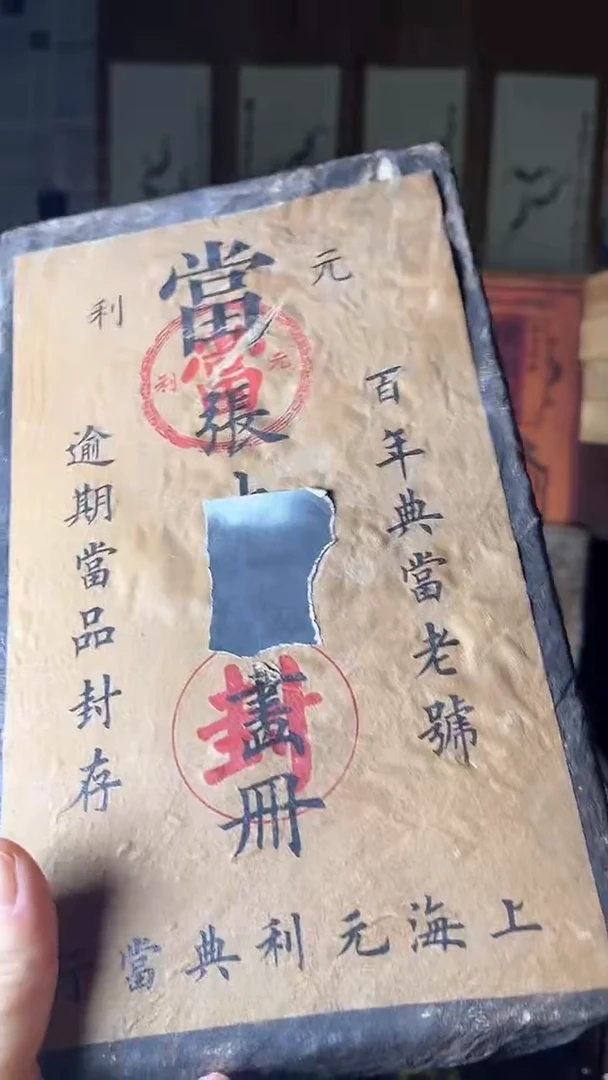 元當利
元當利
百年典當老號
張
畫冊
封
逾期當品封存
上海元利典當行